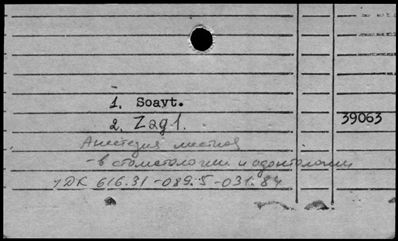 1. Soavt.
2. Zagl.
39063
Анестезия местная
- в стоматологии и одонтологии
УДК 616.31-089.5-031.84